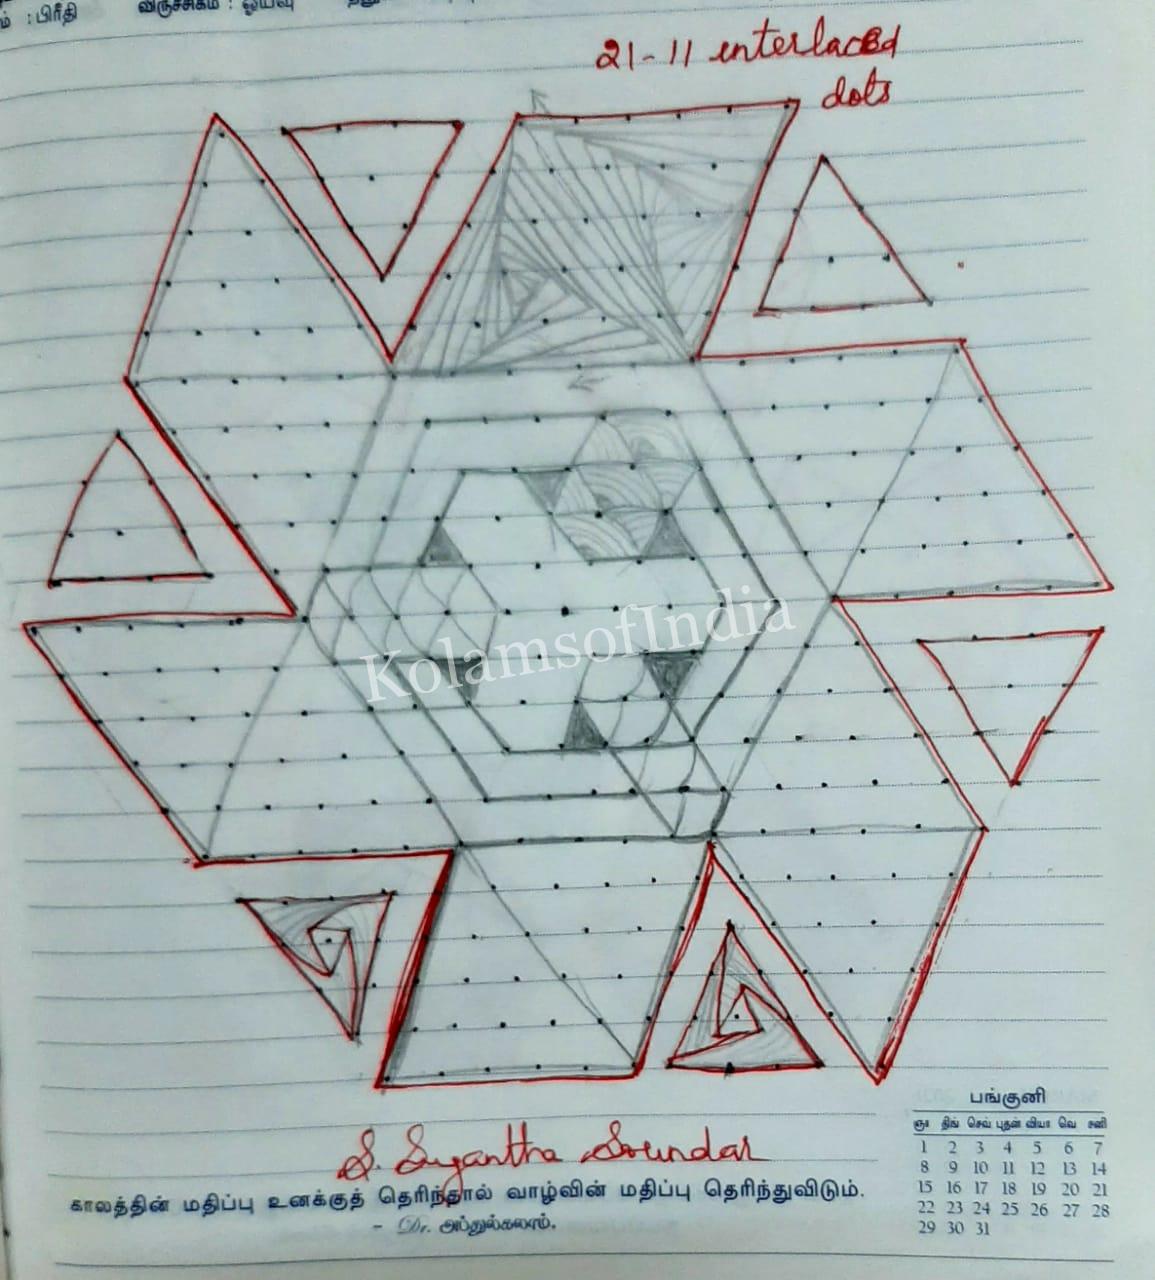 ம் : பிரீதி விருச்சிகம் : ஓய்வு
21-11 interlaced
dots
KolamsofIndia
S. Sugantha Soundar
காலத்தின் மதிப்பு உனக்குத் தெரிந்தால் வாழ்வின் மதிப்பு தெரிந்துவிடும்.
- Dr. அப்துல்கலாம்.
பங்குனி
ஞா திங் செவ் புதன் வியா வெ சனி
1 2 3 4 5 6 7
8 9 10 11 12 13 14
15 16 17 18 19 20 21
22 23 24 25 26 27 28
29 30 31